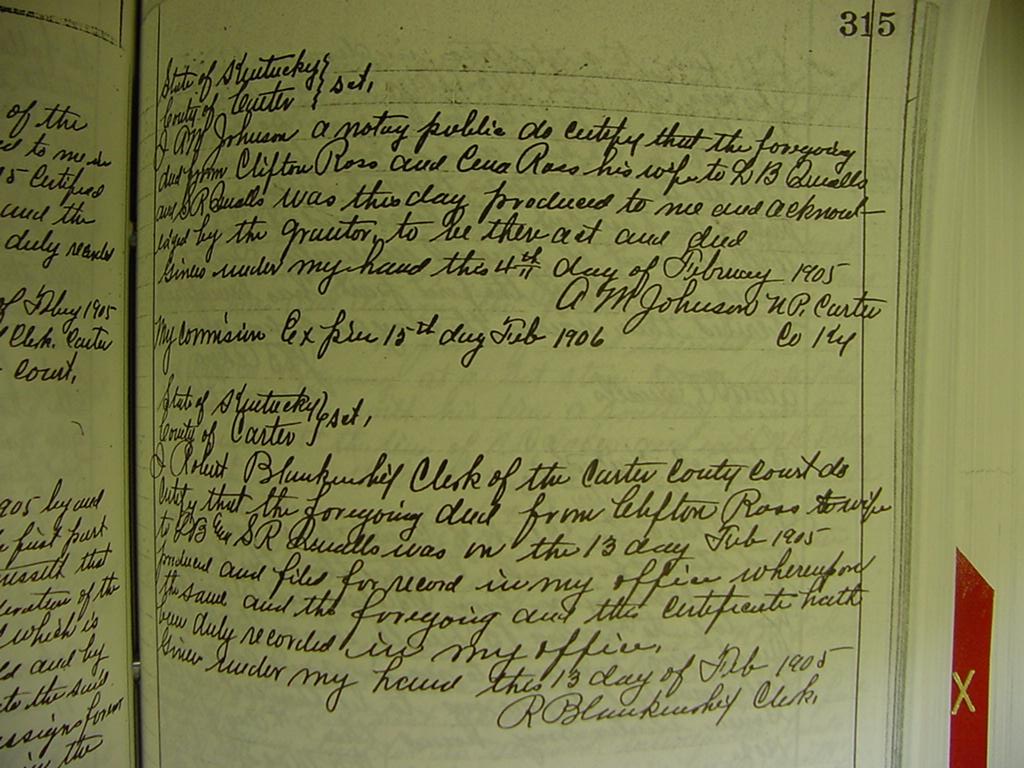 of the
ed to me in
15 Certified
and the
duly recorded
of Feby 1905
Clerk. Carter
Court,
1905 by and
first part
nesseth that
deration of the
which is
and by
to the said
assigns forever
in the
315
State of Kentucky } sct,
County of Carter }
I A M Johnson a notay public do certify that the foregoing
deed from Clifton Ross and Cena Ross his wife to L B Qualls
and S R Qualls was this day produced to me and acknowl-
edged by the grantors to be there act and deed
Given under my hand this 4th day of February 1905
A M Johnson N.P. Carter
Co Ky
My commision Expires 15th day Feb 1906
State of Kentucky } sct,
County of Carter }
I Robert Blankenship Clerk of the Carter County Court do
Certify that the foregoing deed from Clifton Ross & wife
to L B & S R Qualls was on the 13 day Feb 1905
produced and filed for record in my office whereupon
the same and the foregoing and this certificate hath
been duly recorded in my office.
Given under my hand this 13 day of Feb 1905
R Blankenship Clerk.
X